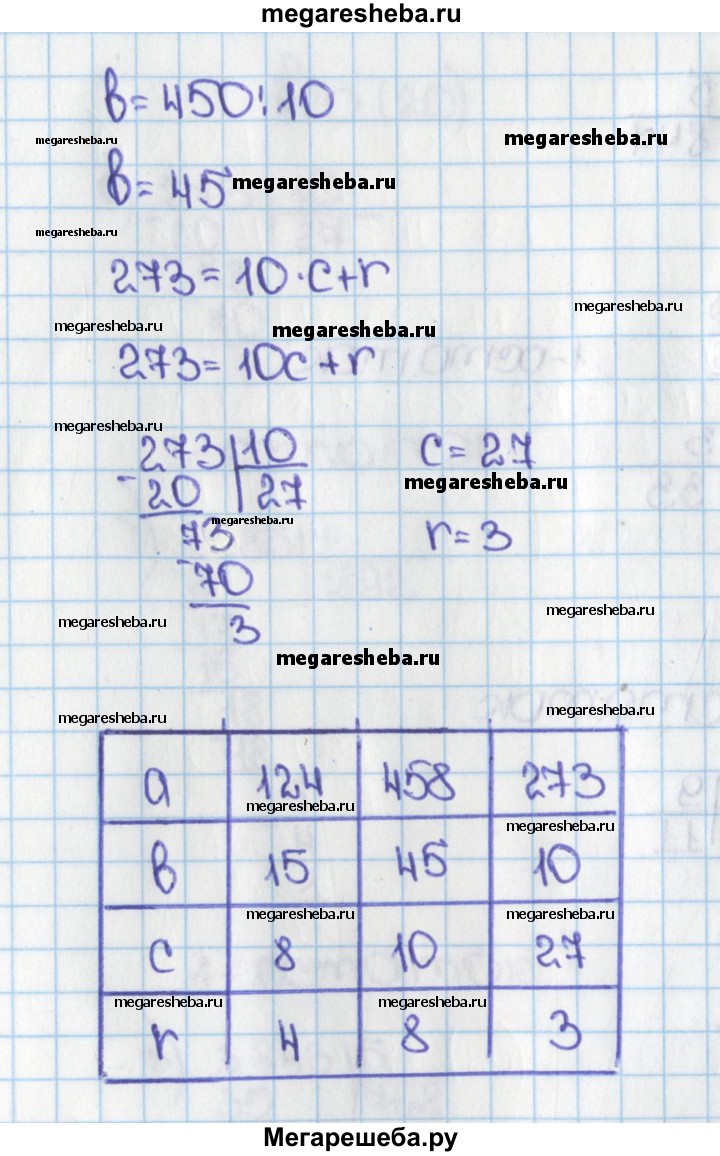 megaresheba.ru
в = 450:10
megaresheba.ru megaresheba.ru
в = 45 megaresheba.ru
megaresheba.ru
273 = 10·c+r
megaresheba.ru
megaresheba.ru megaresheba.ru
273 = 10c+r
megaresheba.ru
273 | 10 c = 27
- 20 | 27 megaresheba.ru
megaresheba.ru
73 r = 3
- 70
megaresheba.ru megaresheba.ru
3
megaresheba.ru
megaresheba.ru megaresheba.ru
a 124 458 273
megaresheba.ru
megaresheba.ru
в 15 45 10
megaresheba.ru megaresheba.ru
c 8 10 27
megaresheba.ru megaresheba.ru
r 4 8 3
Мегарешеба.ру